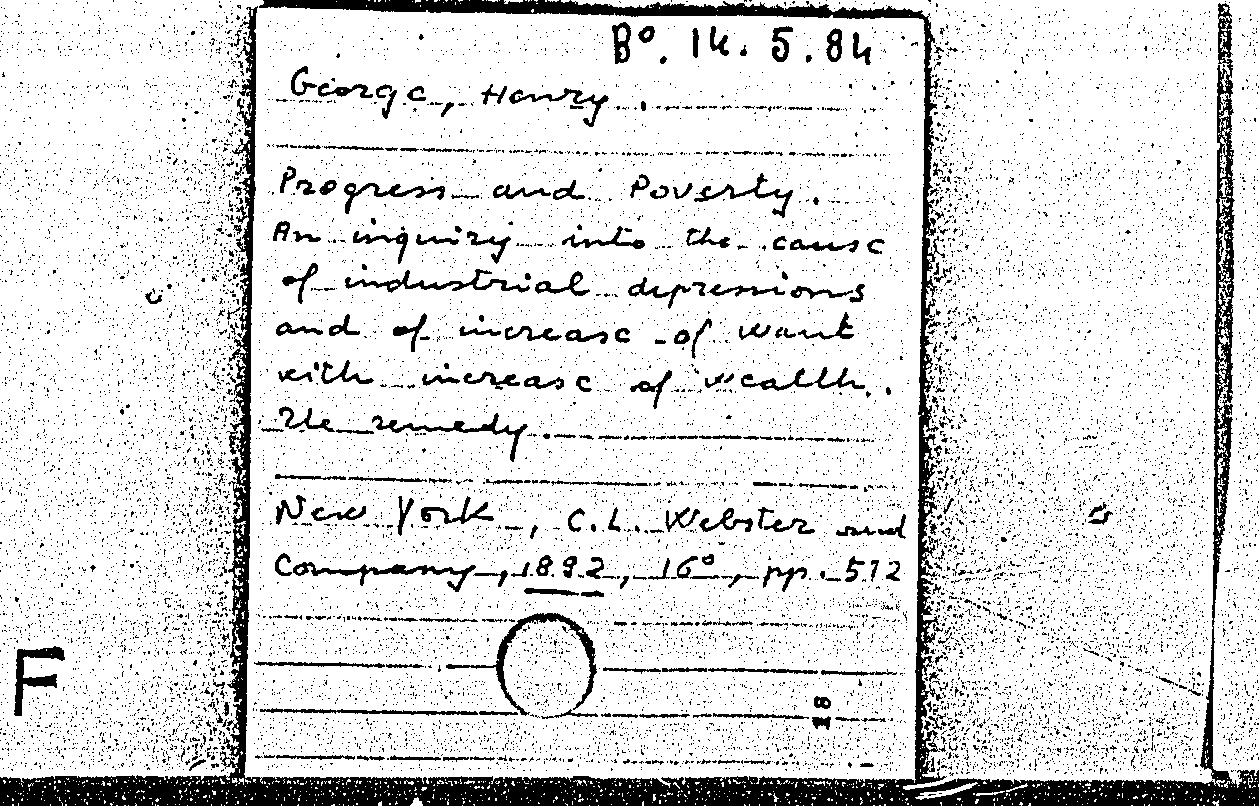 B°. 14. 5. 84
George, Henry.
Progress and Poverty.
An inquiry into the cause
of industrial depressions
and of increase of want
with increase of wealth.
The remedy.
New York, C.L. Webster and
Company, 1892, 16°, pp. 512
18
F